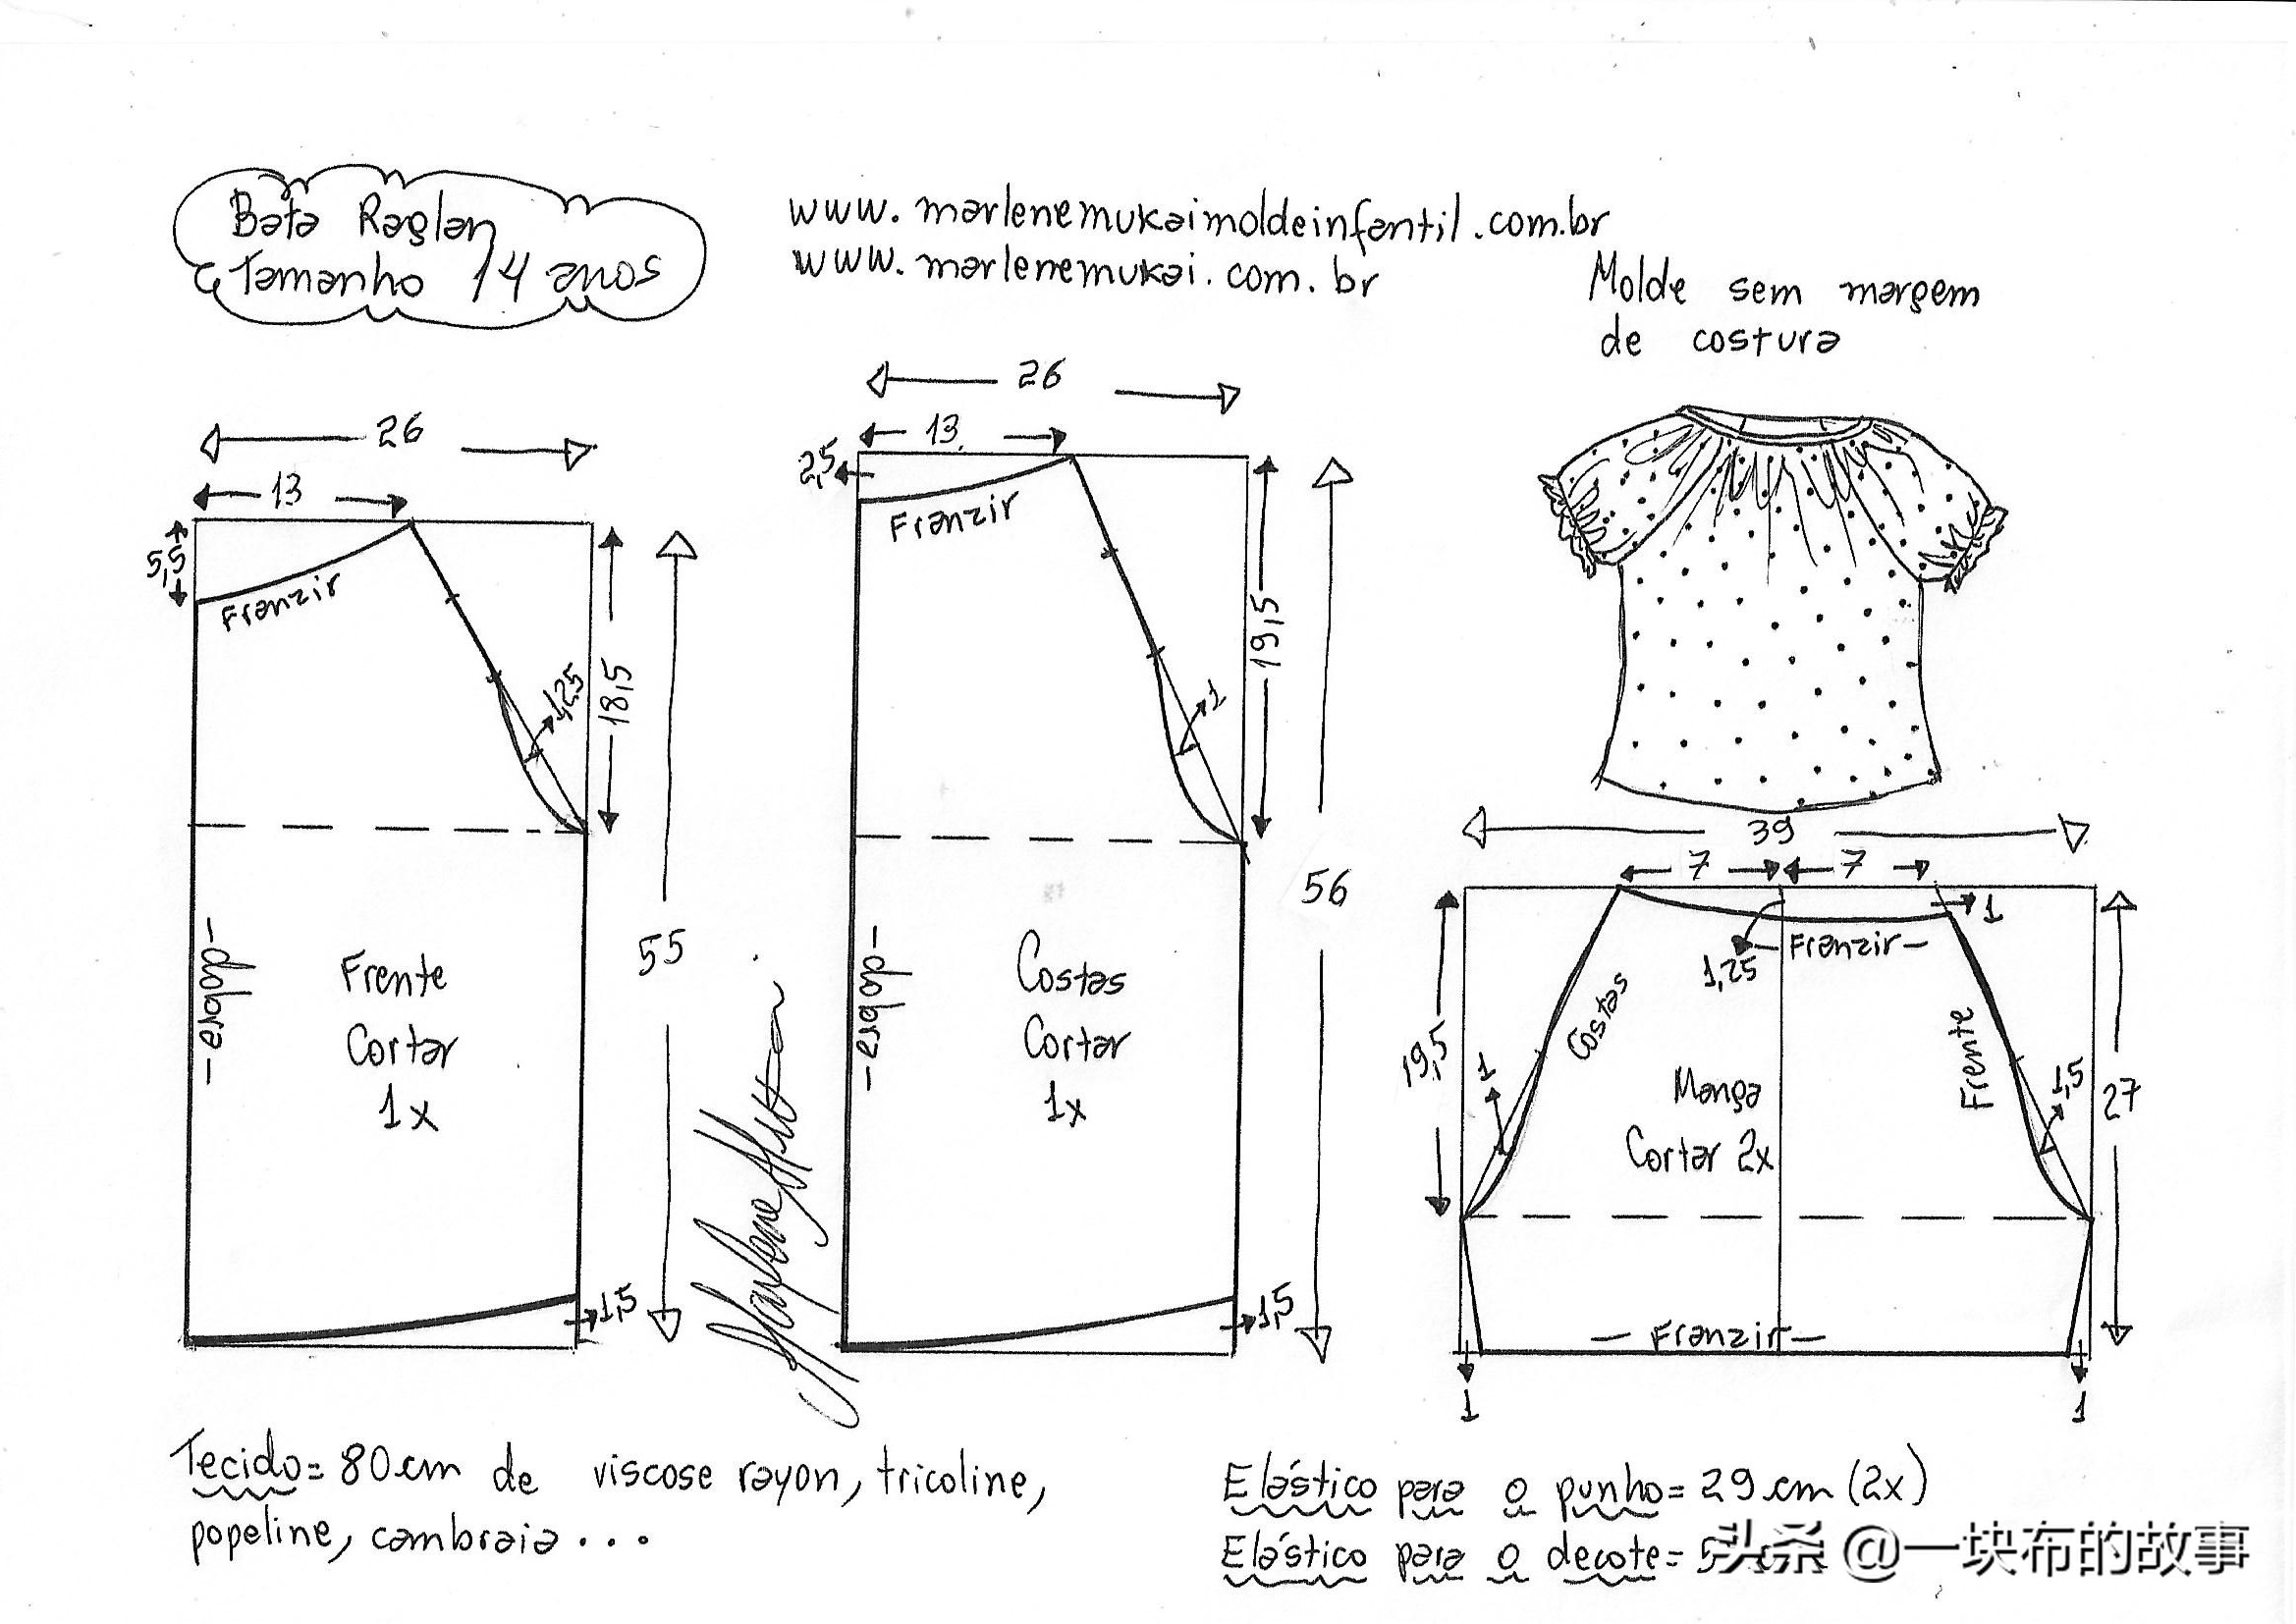 Bata Raglan
Tamanho 14 anos
www.marlenemukaimoldeinfantil.com.br
www.marlenemukai.com.br
Molde sem margem
de costura
26
13
5,5
Franzir
18,5
55
-dobra-
Frente
Cortar
1x
1,5
26
13
2,5
Franzir
1
19,5
56
-dobra-
Costas
Cortar
1x
1,5
39
7
7
1
1,25
Franzir-
19,5
1
Costas
Frente
1,5
27
Manga
Cortar 2x
- Franzir -
1
1
Tecido= 80cm de viscose rayon, tricoline,
popeline, cambraia...
Elástico para o punho= 29cm (2x)
Elástico para o decote= 5
头条 @一块布的故事